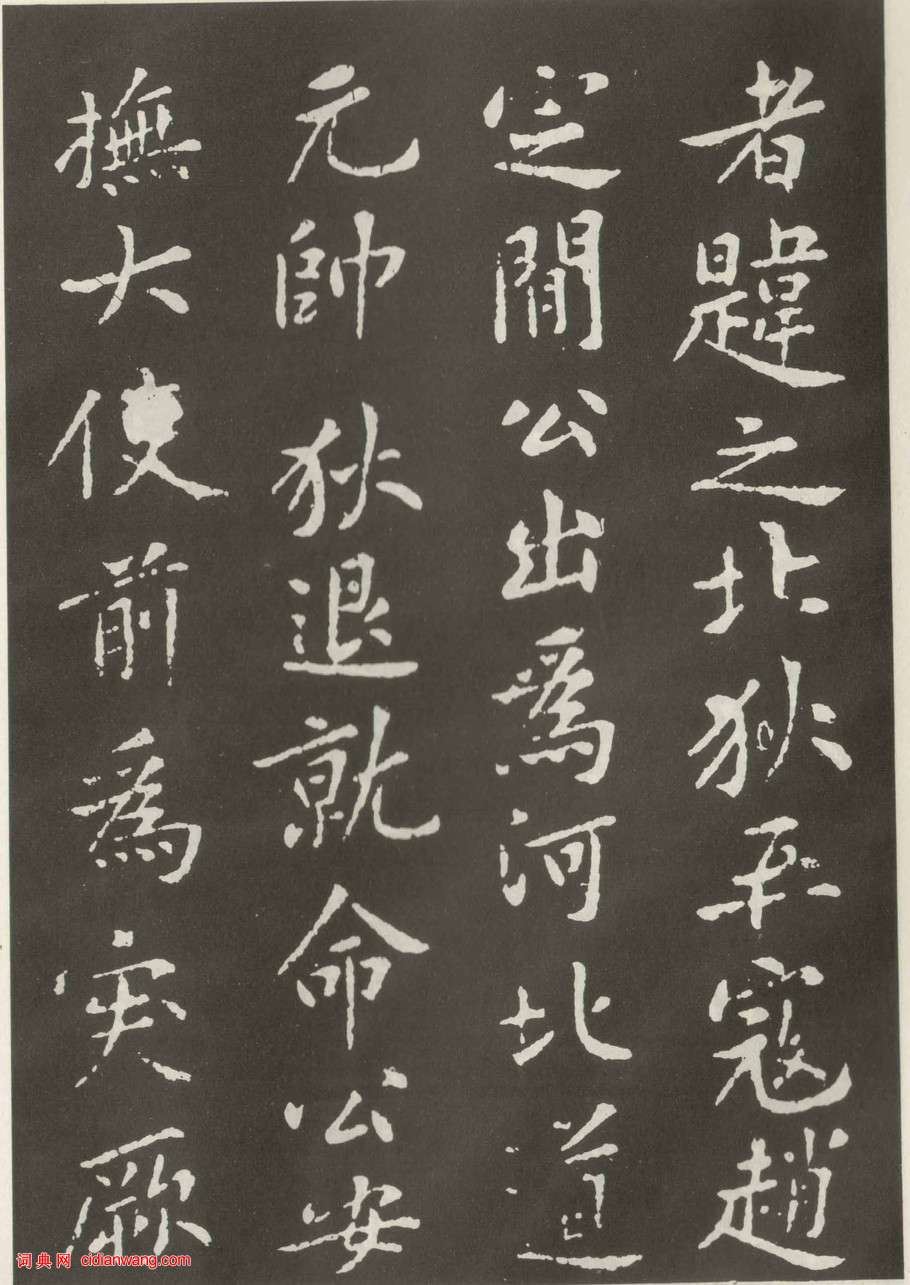 者韙之北狄平寇趙
定間公出為河北道
元帥狄退就命公安
撫大使前為突厥
词典网 cidianwang.com